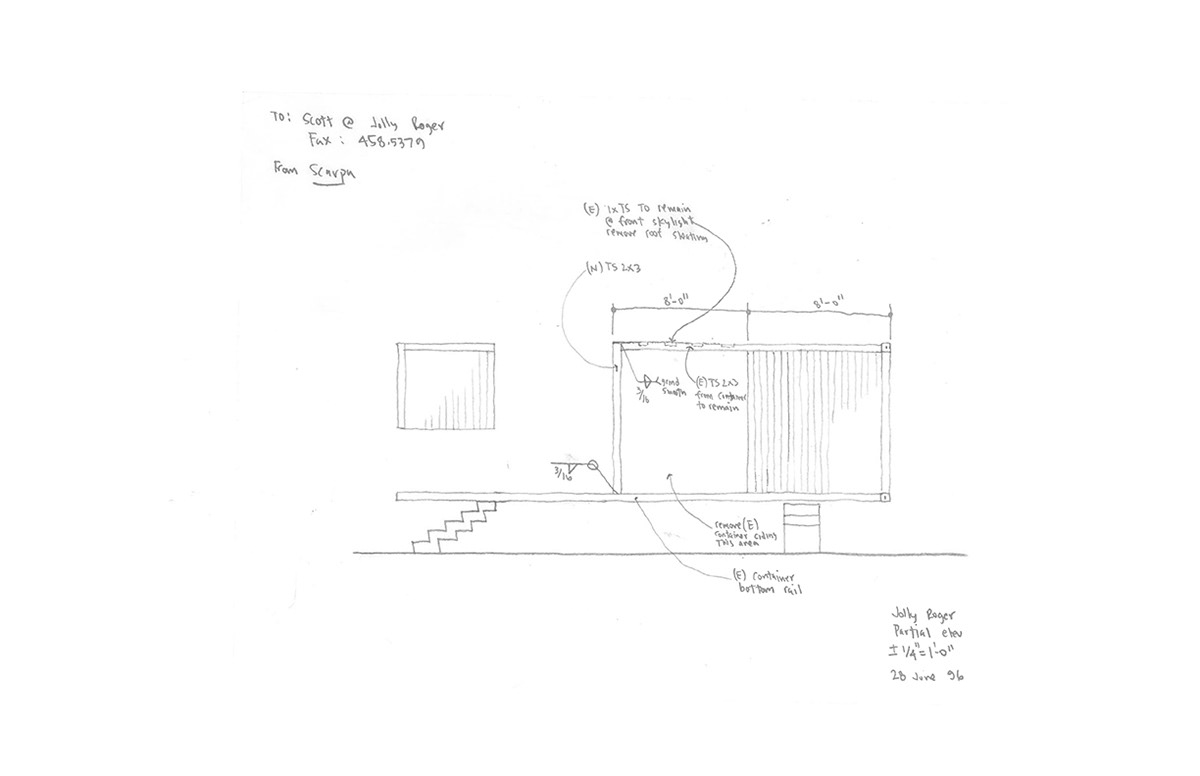 To: Scott @ Jolly Roger
Fax: 458.5379
From Scarpa
(E) TS to remain
@ front skylight
remove roof
(N) TS 2x3
8'-0"
8'-0"
grind
smooth
3/16
(E) TS 2x3
from container
to remain
3/16
remove (E)
container
this area
(E) container
bottom rail
Jolly Roger
Partial elev
± 1/4" = 1'-0"
28 June 96